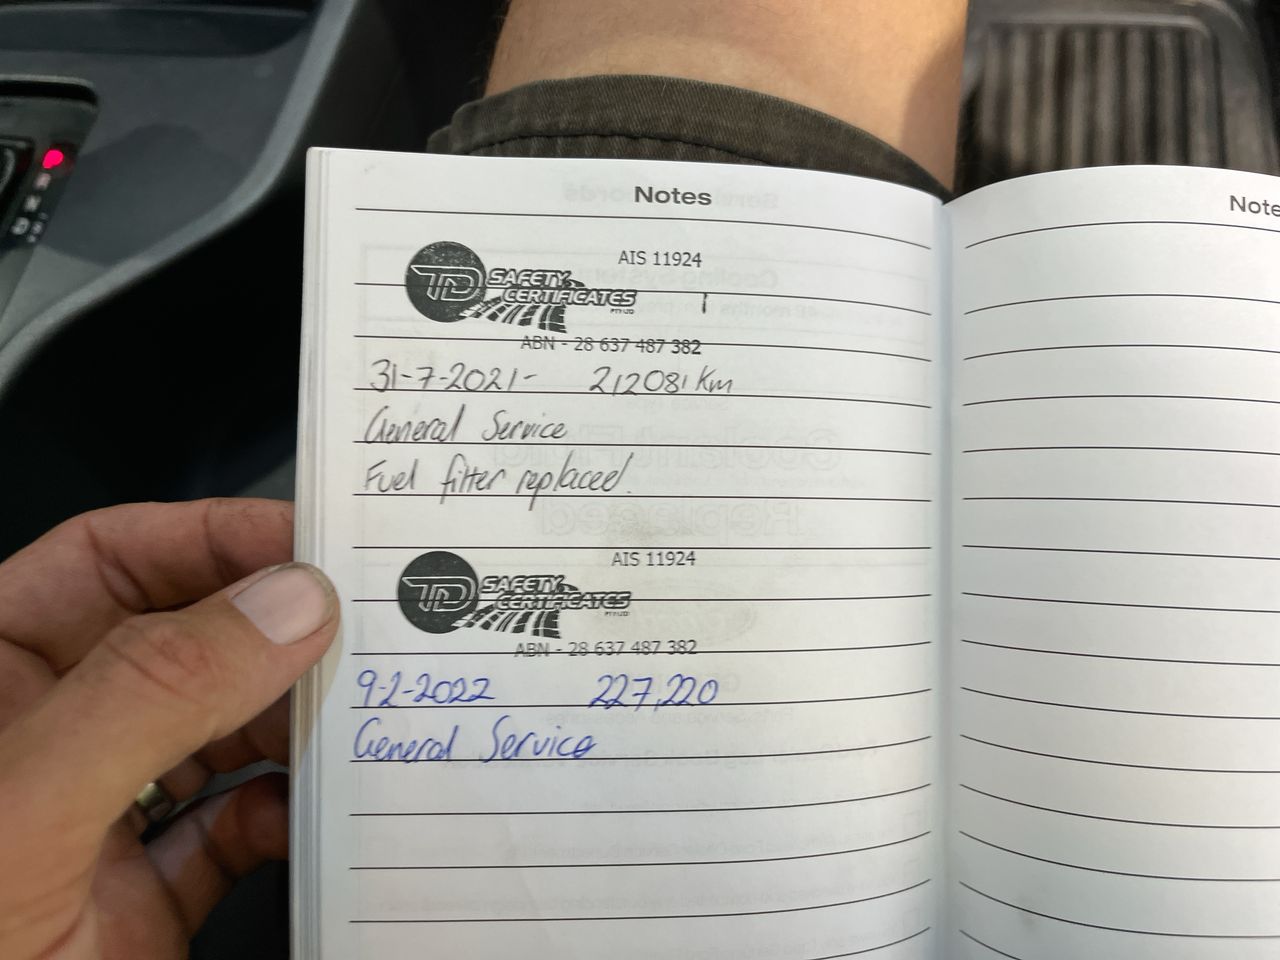 Notes
AIS 11924
TD SAFETY
CERTIFICATES
PTY LTD
ABN - 28 637 487 382
31-7-2021- 212081 Km
General Service
Fuel filter replaced.
AIS 11924
TD SAFETY
CERTIFICATES
PTY LTD
ABN - 28 637 487 382
9-2-2022 227,220
General Service
Note